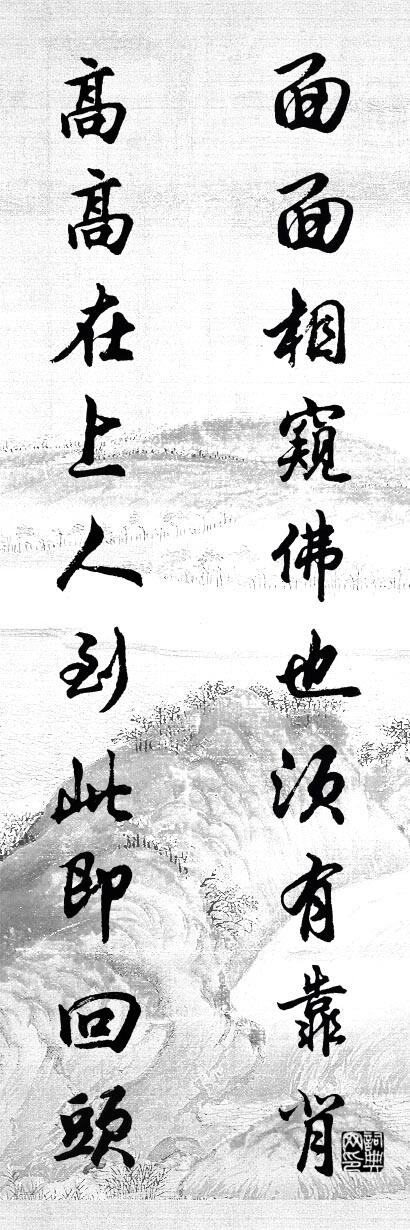 面面相窺佛也須有靠肖
高高在上人到此即回頭
詞典網印